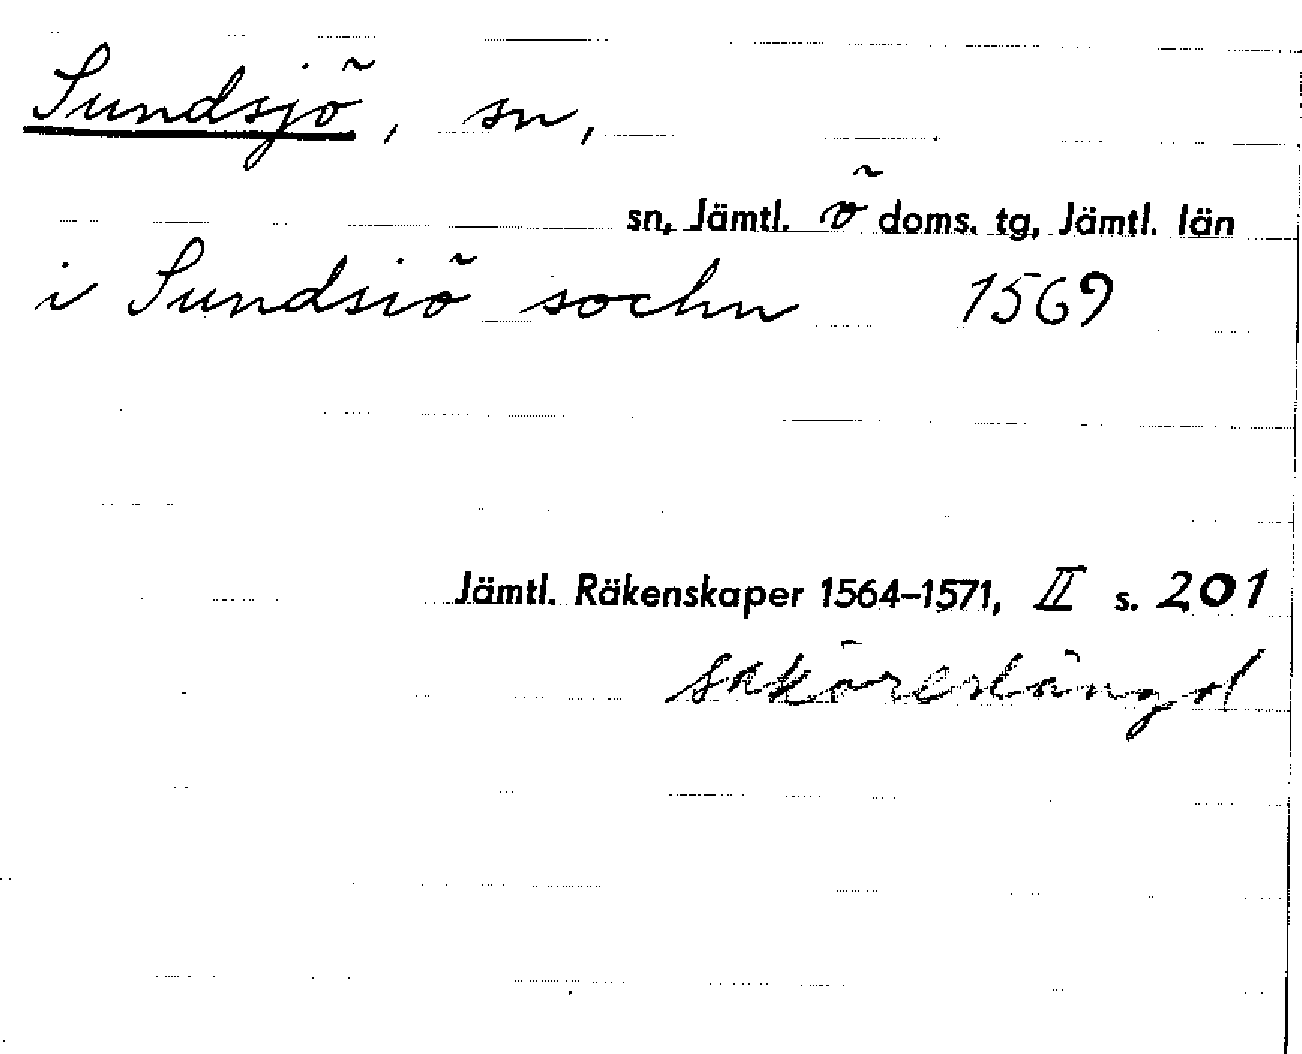 Sundsjö, sn,
sn, Jämtl. ö doms. tg, Jämtl. län
i Sundsiö sochn 1569
Jämtl. Räkenskaper 1564–1571, II s. 201
saköreslängd